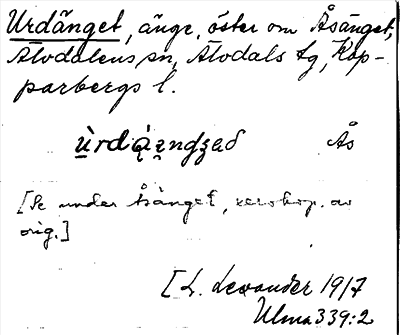 Urdänget, änge, öster om Åsänget,
Älvdalens sn, Älvdals tg, Kop-
parbergs l.
ùrdą̀ęndʒeð Ås
[Se under Åsänget, xeroxkop. av
orig.]
[L. Levander 1917
Ulma 339:2